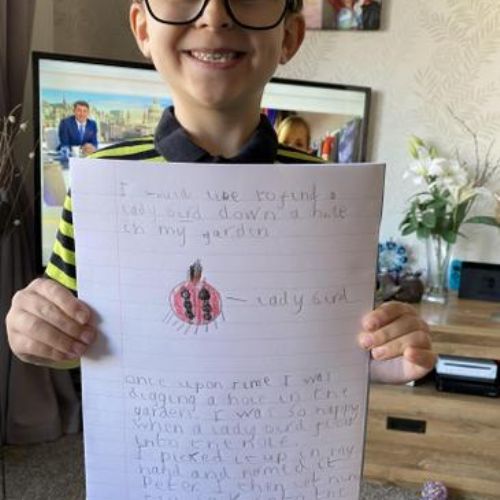 I would like to find a
lady bird down a hole
in my garden
lady bird
once upon time I was
digging a hole in the
garden. I was so happy
when a lady bird
into the hole.
I picked it up in my
hand and named it
Peter. I then